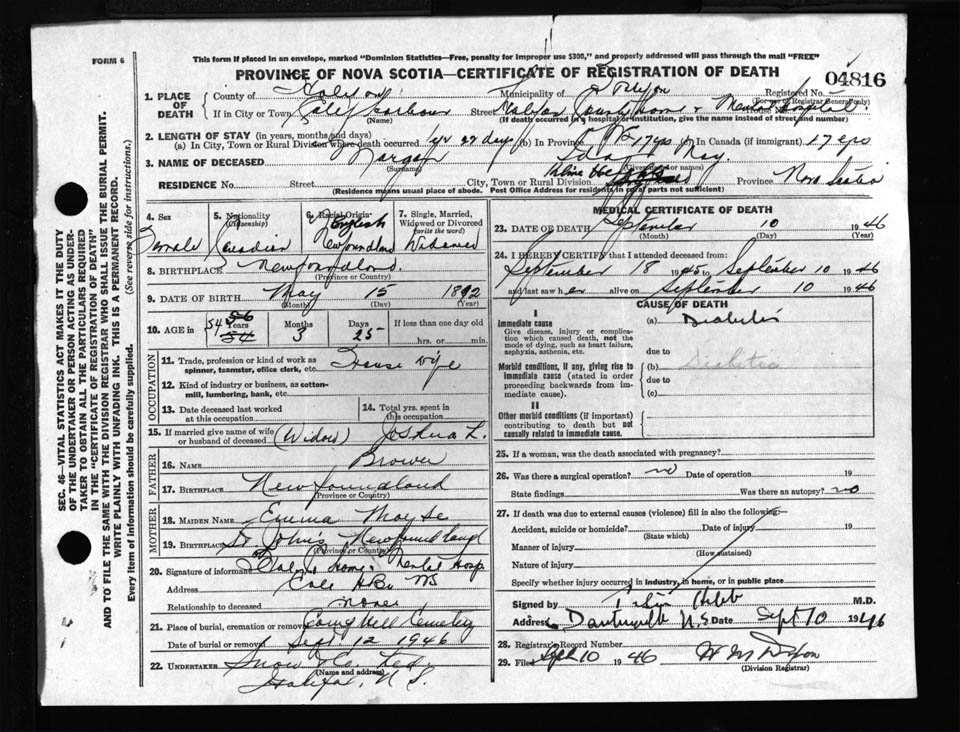 FORM 6
This form if placed in an envelope, marked "Dominion Statistics—Free, penalty for improper use $300," and properly addressed will pass through the mail "FREE"
PROVINCE OF NOVA SCOTIA—CERTIFICATE OF REGISTRATION OF DEATH
04816
1. PLACE OF DEATH
County of Halifax Municipality of Registered No.
(For use of Registrar General only)
If in City or Town Street Halifax County Home & Mental Hospital.
(If death occurred in a hospital or institution, give the name instead of street and number)
2. LENGTH OF STAY (in years, months and days)
(a) In City, Town or Rural Division where death occurred 1 yr 27 days (b) In Province 17 yrs (c) In Canada (if immigrant) 17 yrs
3. NAME OF DECEASED May.
(Surname) (Given or names)
RESIDENCE No. Street City, Town or Rural Division Province Nova Scotia
(Residence means usual place of abode. Post Office Address for residents in rural parts not sufficient)
4. Sex Female
5. Nationality (Citizenship) Canadian
6. Racial Origin English Newfoundland
7. Single, Married, Widowed or Divorced (write the word) Widowed
8. BIRTHPLACE Newfoundland.
(Province or Country)
9. DATE OF BIRTH May 15 1892
(Month) (Day) (Year)
10. AGE in 54 Years 3 Months 25 Days If less than one day old hrs. or min.
OCCUPATION
11. Trade, profession or kind of work as spinner, teamster, office clerk, etc. House wife
12. Kind of industry or business, as cotton-mill, lumbering, bank, etc.
13. Date deceased last worked at this occupation
14. Total yrs. spent in this occupation
15. If married give name of wife or husband of deceased (Widow) Joshua L.
FATHER
16. Name Brower
17. Birthplace Newfoundland
(Province or Country)
MOTHER
18. Maiden Name Emma
19. Birthplace St. John's Newfoundland
(Province or Country)
20. Signature of informant Home & Mental Hosp
Address Cole HBr NS
Relationship to deceased none
21. Place of burial, cremation or removal Cemetery
Date of burial or removal Sept. 12 1946
22. UNDERTAKER Snow & Co. Ltd.
(Name and address)
Halifax, N. S.
MEDICAL CERTIFICATE OF DEATH
23. DATE OF DEATH September 10 1946
(Month) (Day) (Year)
24. I HEREBY CERTIFY that I attended deceased from:
September 18 1945 to September 10 1946
and last saw her alive on September 10 1946
CAUSE OF DEATH
I
Immediate cause (a) Diabetes
Give disease, injury or complication which caused death, not the mode of dying, such as heart failure, asphyxia, asthenia, etc.
due to
Morbid conditions, if any, giving rise to immediate cause (stated in order proceeding backwards from immediate cause).
(b) Diabetes
due to
(c)
II
Other morbid conditions (if important) contributing to death but not causally related to immediate cause.
25. If a woman, was the death associated with pregnancy?
26. Was there a surgical operation? no Date of operation 19
State findings Was there an autopsy? no
27. If death was due to external causes (violence) fill in also the following:—
Accident, suicide or homicide? Date of injury 19
(State which)
Manner of injury
(How sustained)
Nature of injury
Specify whether injury occurred in industry, in home, or in public place
Signed by Hebb M.D.
Address Dartmouth N.S. Date Sept 10 1946
28. Registrar's Record Number
29. Filed Sept 10 1946
(Division Registrar)
SEC. 46—VITAL STATISTICS ACT MAKES IT THE DUTY
OF THE UNDERTAKER OR PERSON ACTING AS UNDER-
TAKER TO OBTAIN ALL THE PARTICULARS REQUIRED
IN THE "CERTIFICATE OF REGISTRATION OF DEATH"
AND TO FILE THE SAME WITH THE DIVISION REGISTRAR WHO SHALL ISSUE THE BURIAL PERMIT.
WRITE PLAINLY WITH UNFADING INK. THIS IS A PERMANENT RECORD.
Every item of information should be carefully supplied. (See reverse side for instructions.)